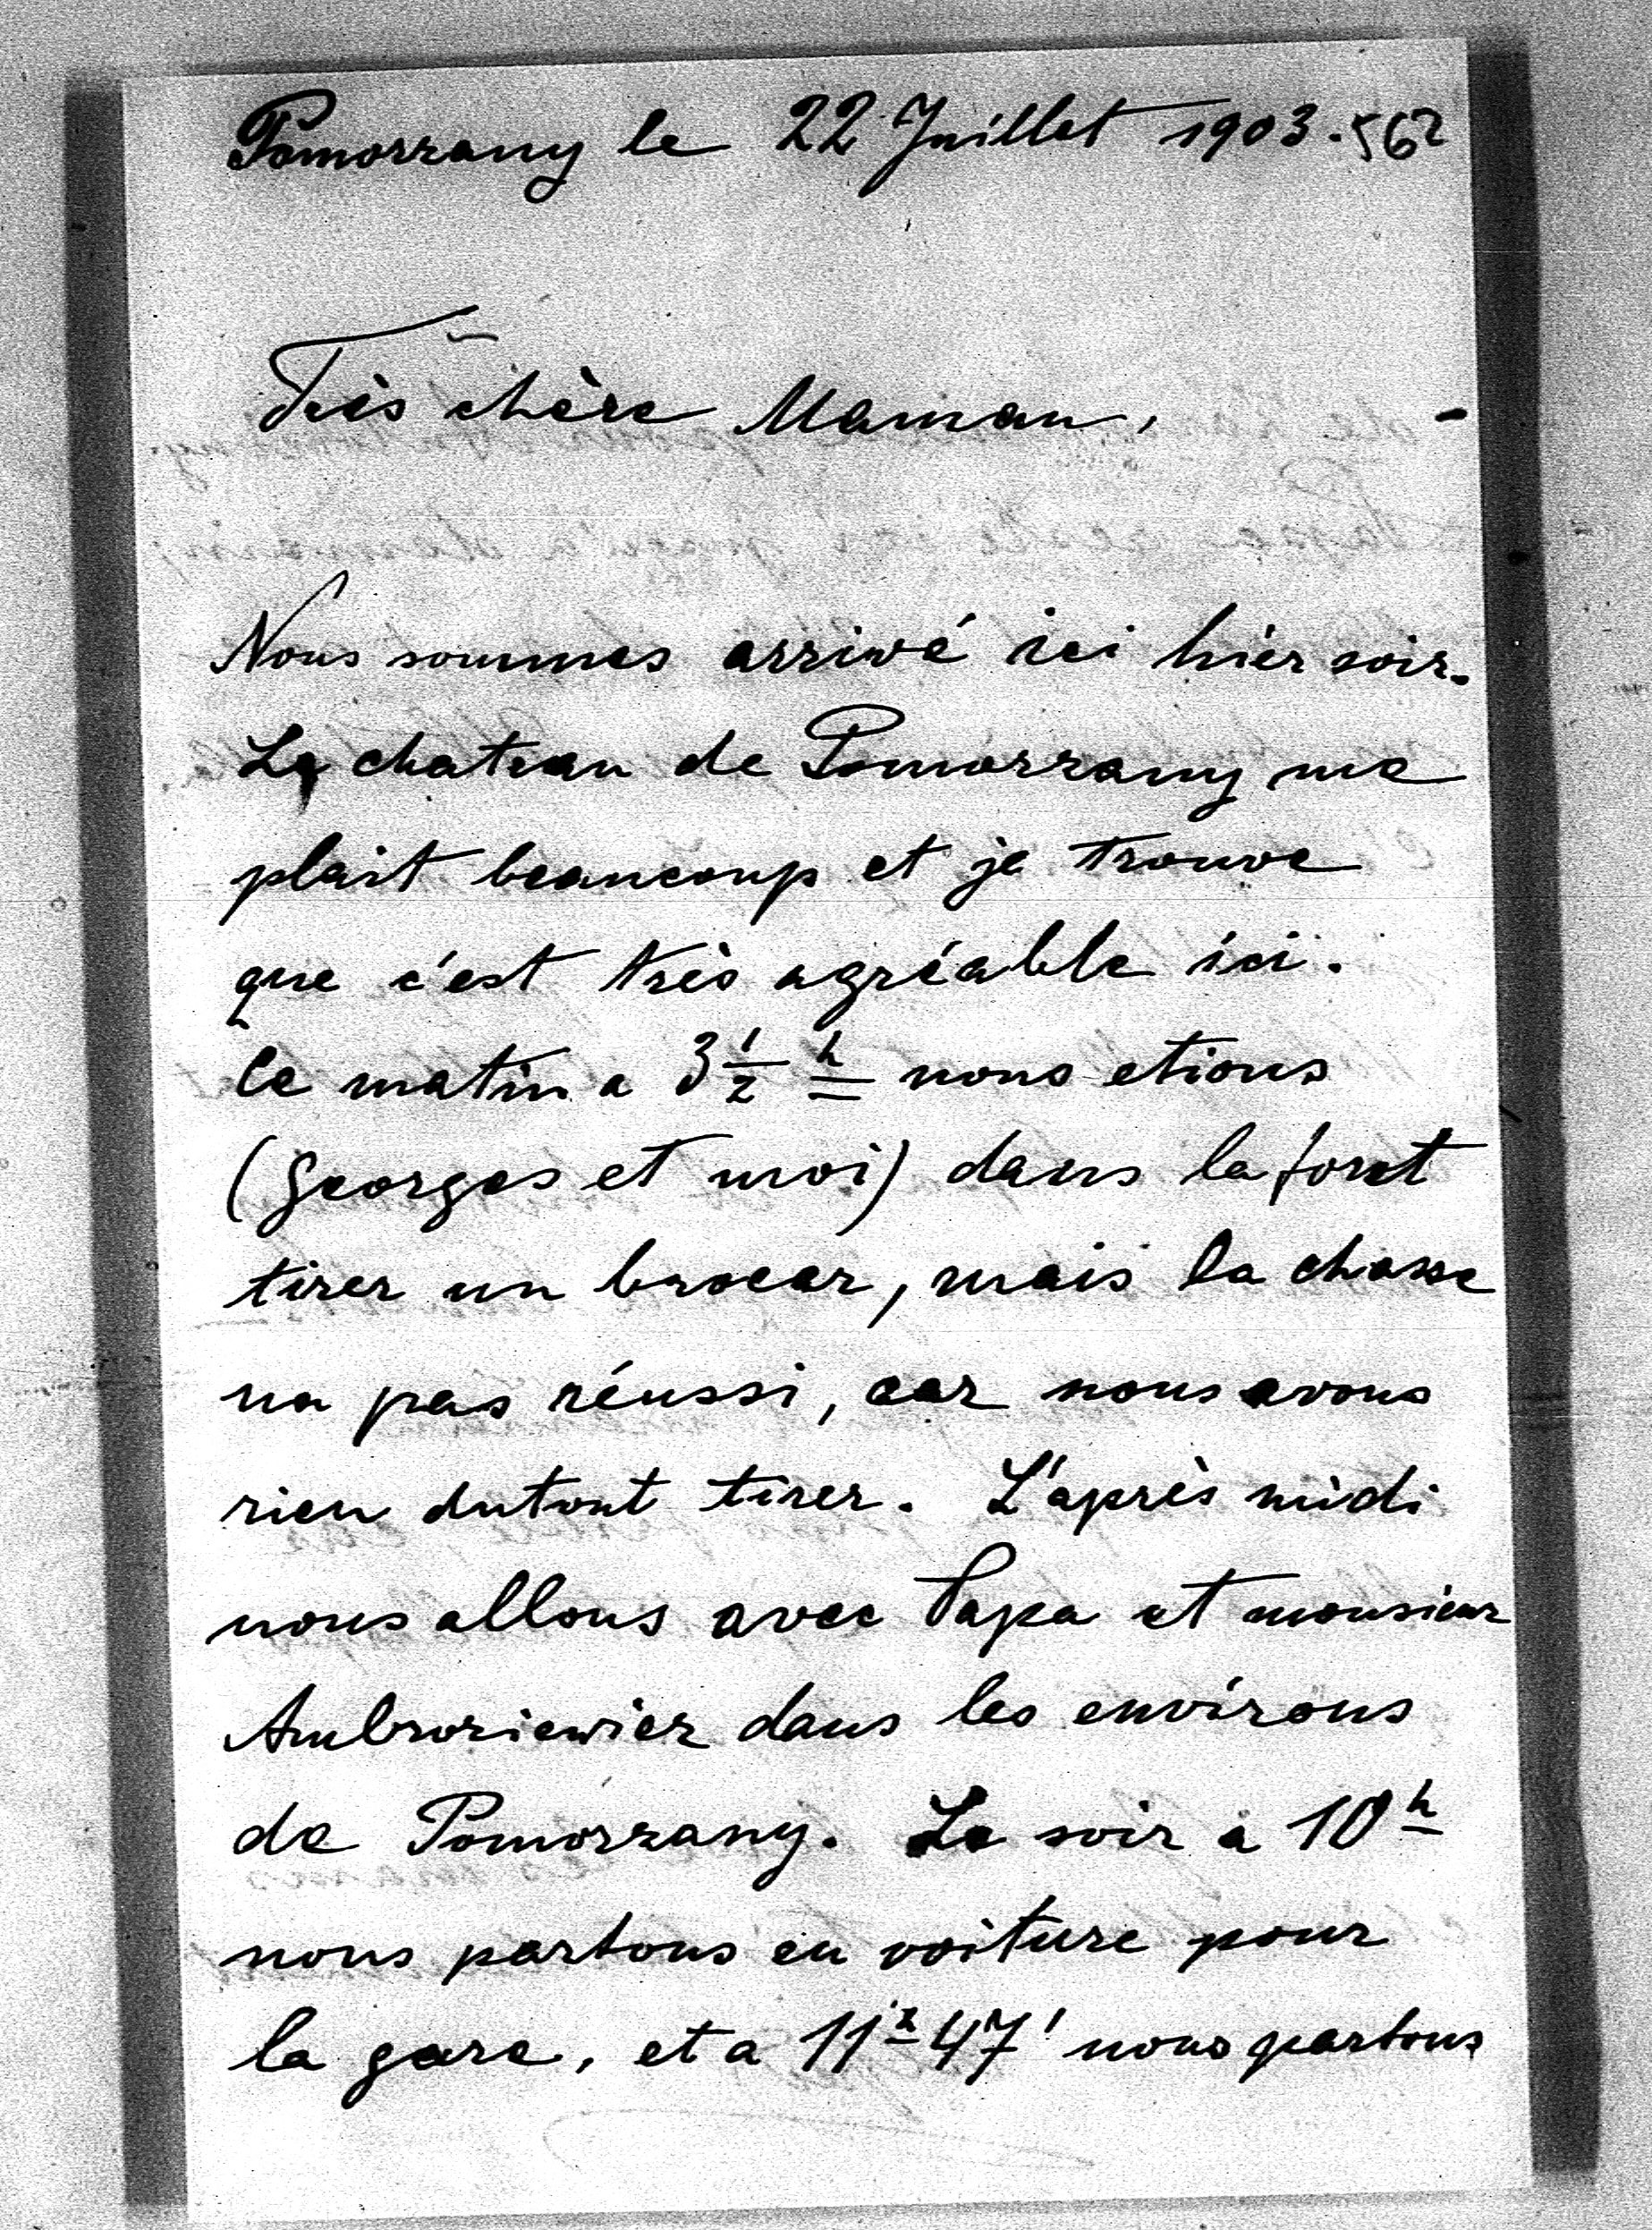 Pomorzany le 22 Juillet 1903. 562
Très chère Maman,
Nous sommes arrivé ici hier soir.
Le chateau de Pomorzany me
plait beaucoup et je trouve
que c'est très agréable ici.
Ce matin a 3 1/2 h nous etions
(Georges et moi) dans la foret
tirer un brocar, mais la chasse
na pas réussi, car nous avons
rien dutout tirer. L'après midi
nous allons avec Papa et monsieur
Ambroziewicz dans les environs
de Pomorzany. Le soir à 10h
nous partons en voiture pour
la gare, et a 11h 47' nous partons